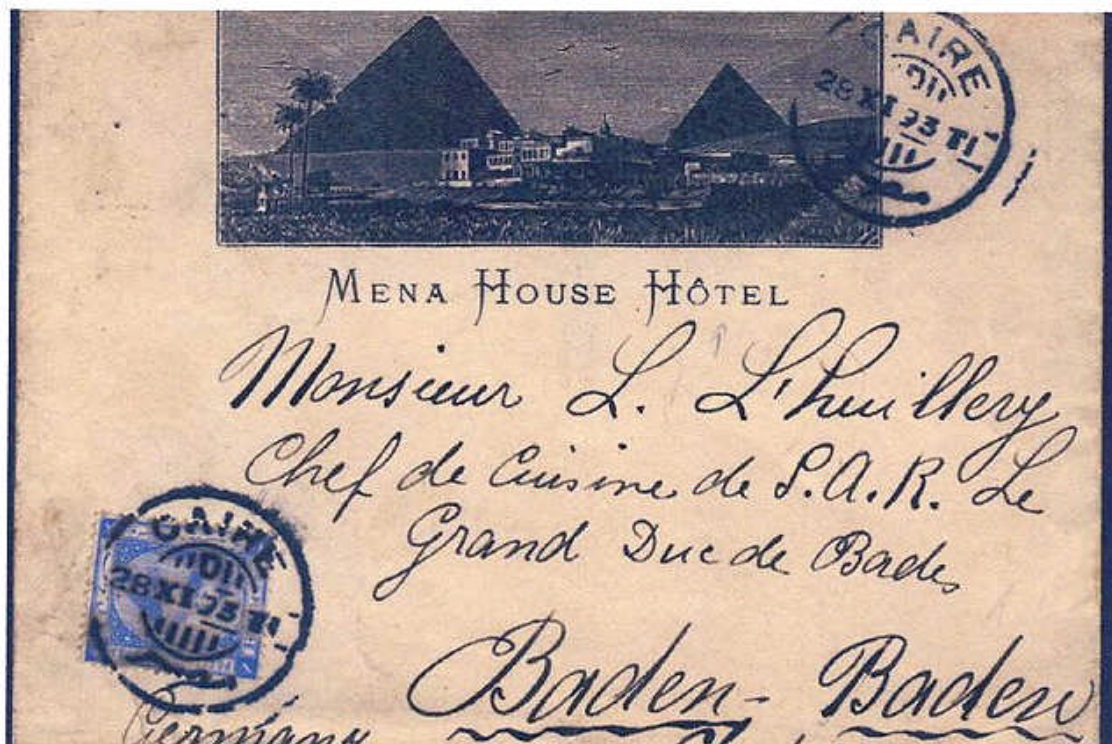 CAIRE
28 XI 93 TI
MENA HOUSE HÔTEL
Monsieur L. L'huillery
Chef de Cuisine de S.A.R. Le
Grand Duc de Bade
CAIRE
28 XI 93 TI
Baden-Baden
Germany